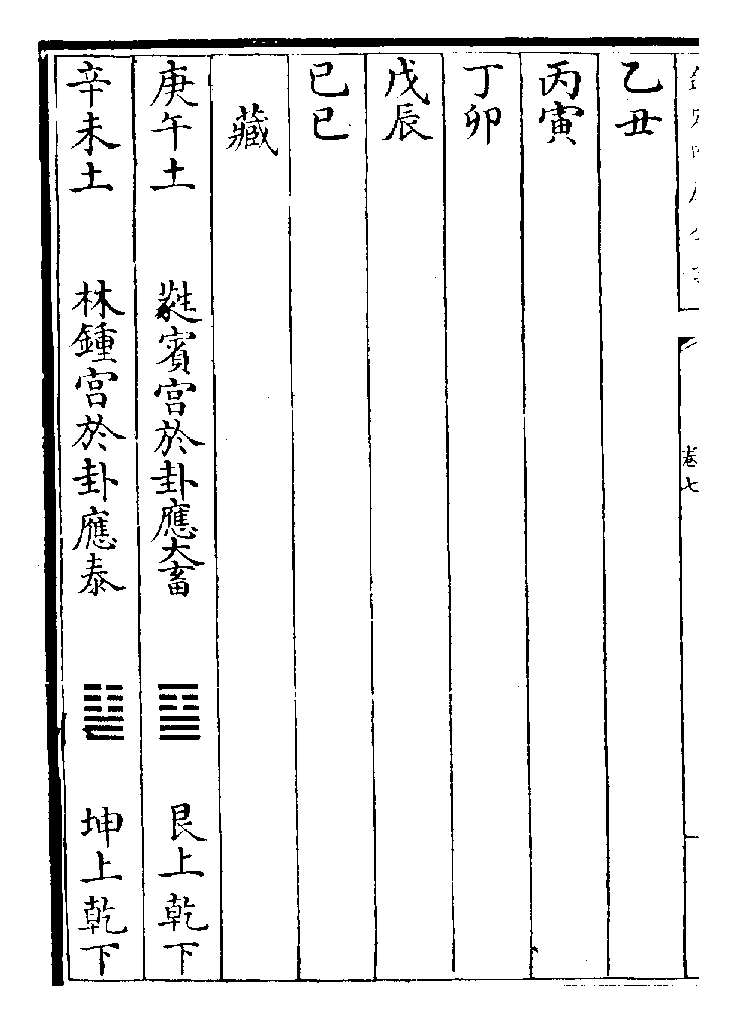 卷七
乙丑
丙寅
丁卯
戊辰
己巳
藏
庚午土 蕤賓宮於卦應大畜 ䷙ 艮上乾下
辛未土 林鍾宮於卦應泰 ䷊ 坤上乾下